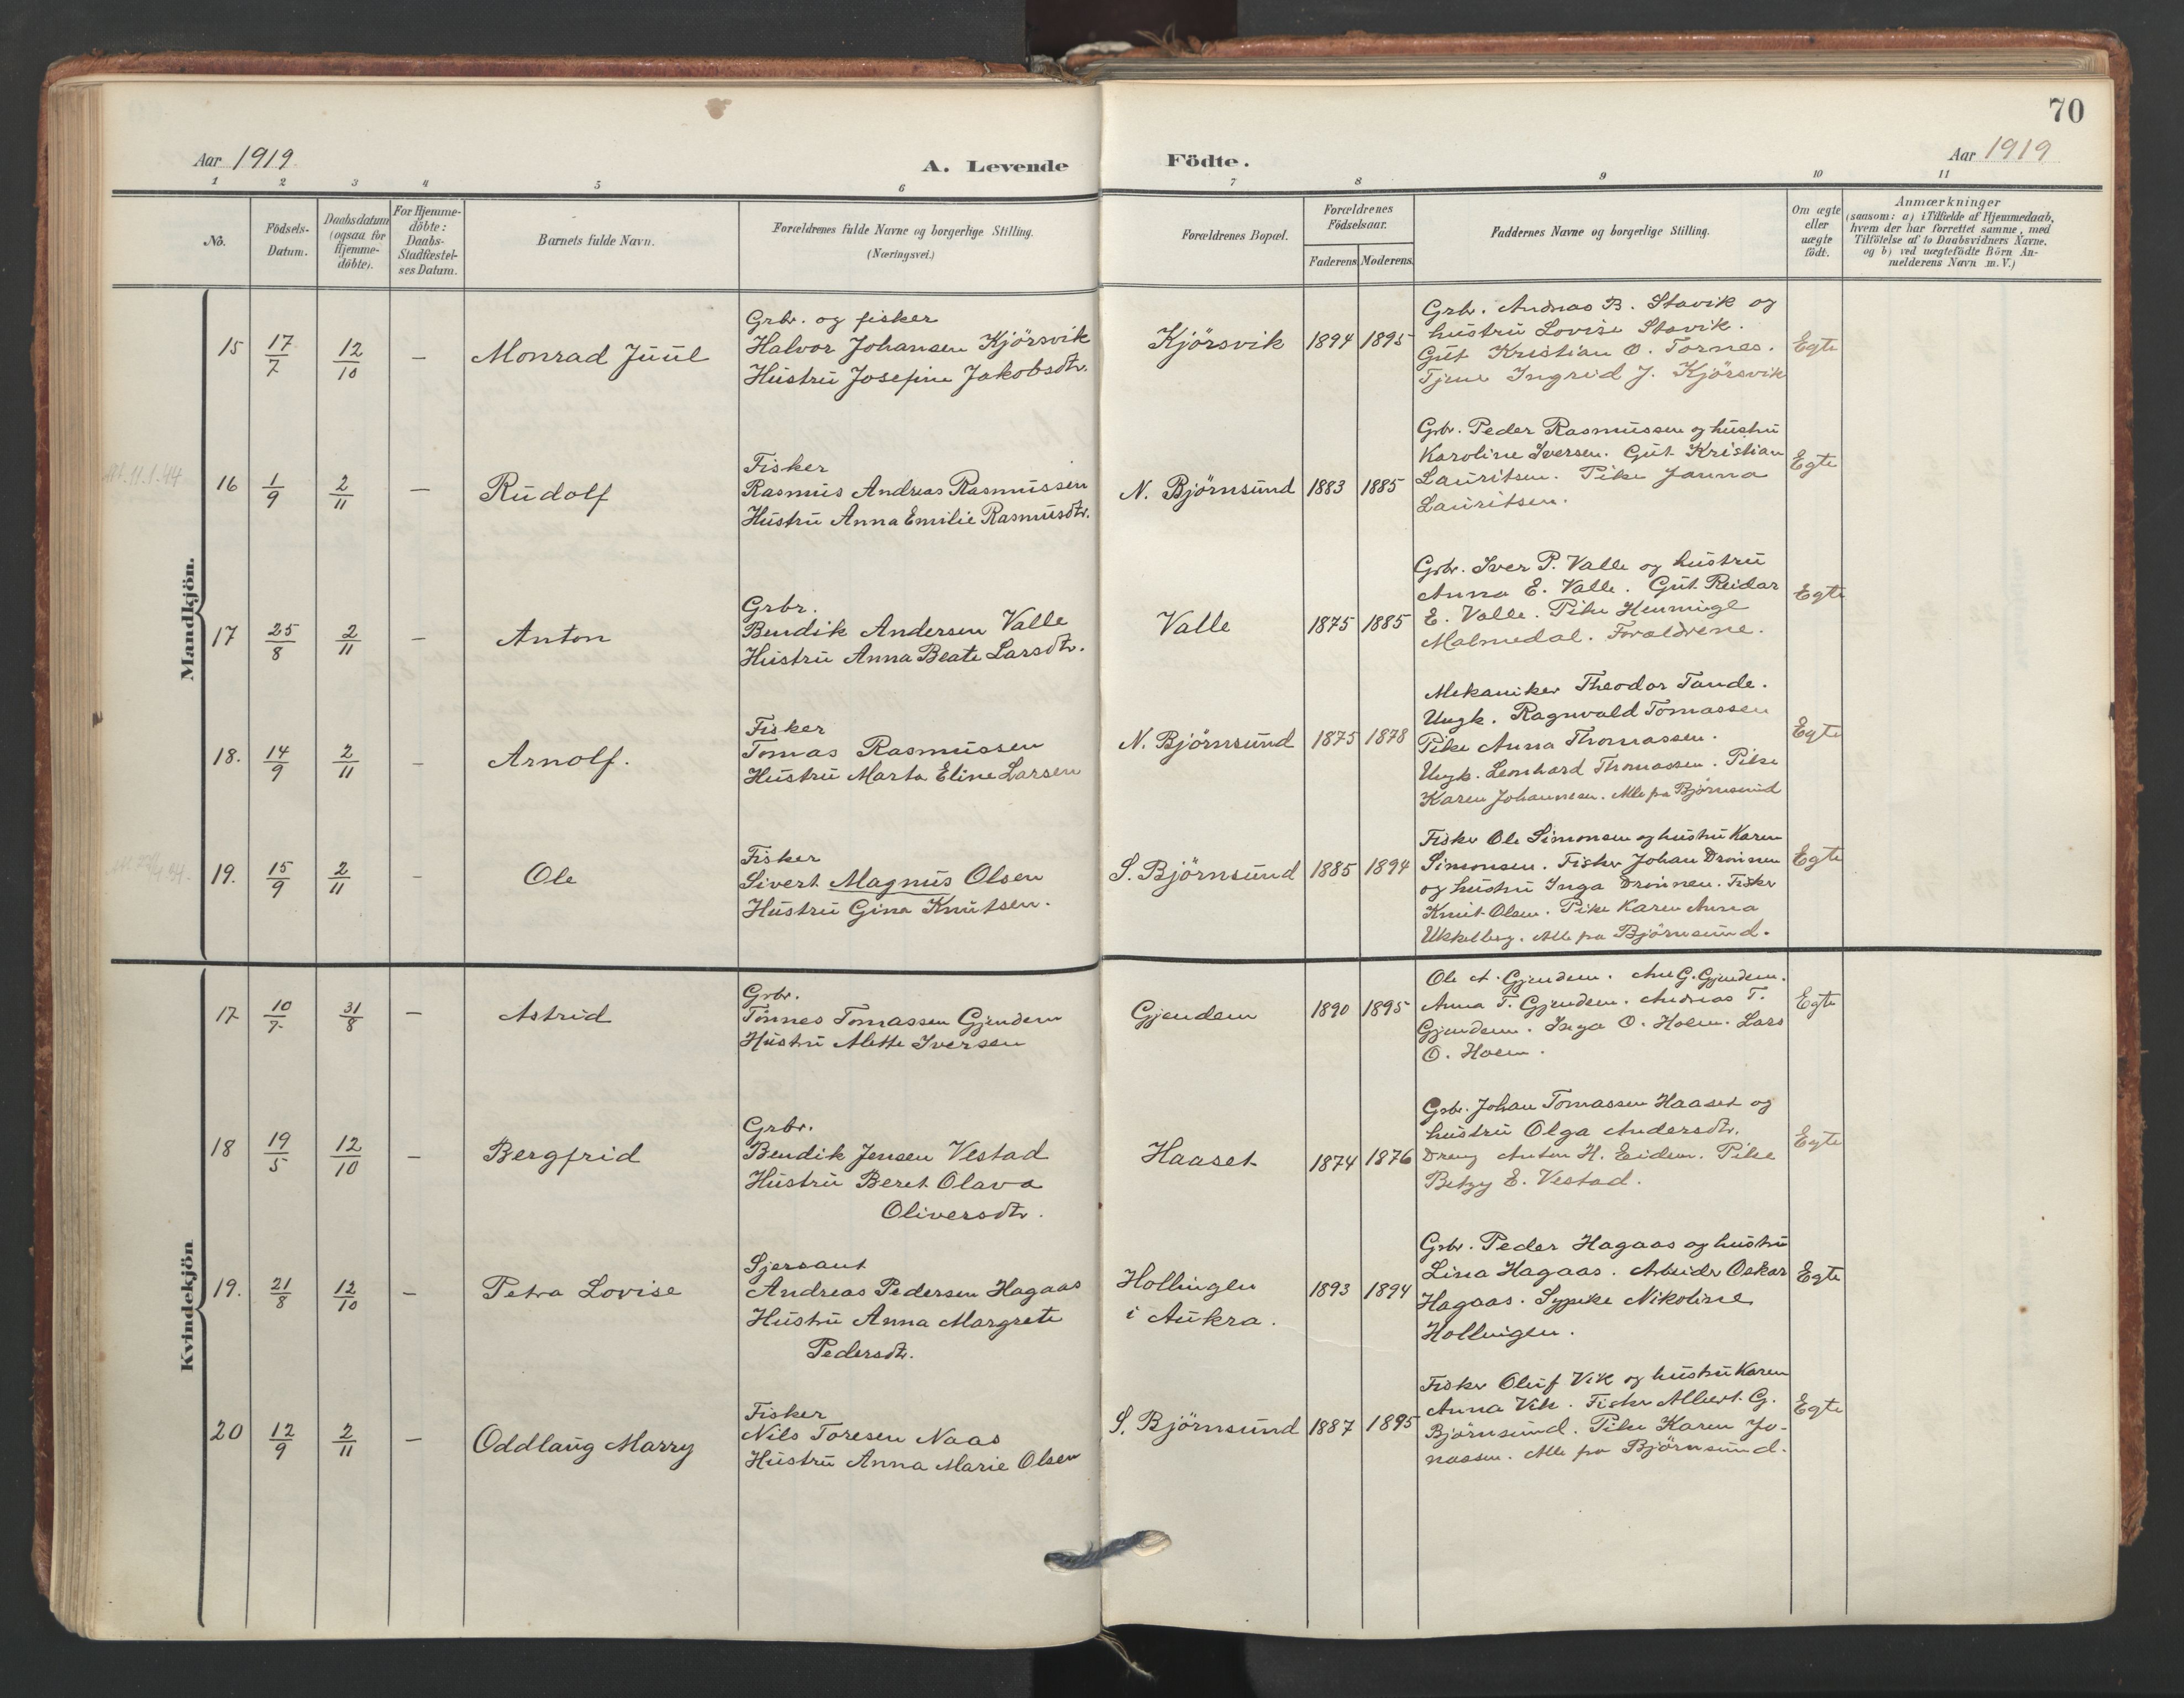 70
Aar 1919
A. Levende Födte.
Aar 1919
1 2 3 4 5 6 7 8 9 10 11
No.
Födsels-
Datum.
Daabsdatum
(ogsaa for
Hjemme-
döbte).
For Hjemme-
döbte:
Daabs-
Stadfæstel-
ses Datum.
Barnets fulde Navn.
Forældrenes fulde Navne og borgerlige Stilling.
(Næringsvei.)
Forældrenes Bopæl.
Forældrenes
Födselsaar.
Faderens. Moderens.
Faddernes Navne og borgerlige Stilling.
Om ægte
eller
uægte
födt.
Anmærkninger
(saasom: a) i Tilfælde af Hjemmedaab,
hvem der har forrettet samme, med
Tilföielse af to Daabsvidners Navne,
og b) ved uægtefödte Börn An-
melderens Navn m. V.)
Mandkjön.
15 17/7 12/10 — Monrad Juul
Grbr. og fisker
Halvor Johansen Kjörsvik
Hustru Josefine Jakobsdtr.
Kjörsvik 1894 1895
Grbr. Andreas B. Stavik og
hustru Lovise Stavik.
Gut Kristian O. Tornes.
Tjene Ingrid J. Kjörsvik
Egte
Att. 11.1.44
16 1/9 2/11 — Rudolf
Fisker
Rasmus Andreas Rasmussen
Hustru Anna Emilie Rasmusdtr.
N. Björnsund 1883 1885
Grbr. Peder Rasmussen og hustru
Karoline Iversen. Gut Kristian
Lauritsen. Pike Janna
Lauritsen.
Egte
17 25/8 2/11 — Anton
Grbr.
Bendik Andersen Valle
Hustru Anna Beate Larsdtr.
Valle 1875 1885
Grbr. Iver P. Valle og hustru
Anna E. Valle. Gut Reidar
E. Valle. Pike
Malmedal. Forældrene.
Egte
18. 14/9 2/11 — Arnolf.
Fisker
Tomas Rasmussen
Hustru Marta Eline Larsen
N. Björnsund 1875 1878
Mekaniker Theodor Tande.
Ungk. Ragnvald Tomassen
Pike Anna Thomassen.
Ungk. Leonhard Thomassen. Pike
Karen Johannesen. Alle pa Björnsund
Egte
19. 15/9 2/11 — Ole
Fisker
Sivert Magnus Olsen
Hustru Gina Knutsen.
S. Björnsund 1885 1894
Fisker Ole Simonsen og hustru Karen
Simonsen. Fisker Johan Drönnen
og hustru Inga Drönnen. Fisker
Knut Olsen. Pike Karen Anna
Ukkelberg. Alle pa Björnsund.
Egte
Kvindekjön
17 10/7 31/8 — Astrid
Grbr.
Tönnes Tomassen Gjendem
Hustru Alette Iversen
Gjendem 1890 1895
Ole A. Gjendem. Ane G. Gjendem.
Anna T. Gjendem. Andreas T.
Gjendem. Inga O. Hoem. Lars
O. Hoem.
Egte
18 19/5 12/10 — Bergfrid
Grbr.
Bendik Jensen Vestad
Hustru Beret Olava
Oliversdtr.
Haaset 1874 1876
Grbr. Johan Tomassen Haaset og
hustru Olga Andersdtr.
Dreng Anton H. Eidem. Pike
Betzy E. Vestad.
Egte
19. 21/8 12/10 — Petra Lovise
Sjersant
Andreas Pedersen Hagaas
Hustru Anna Margrete
Pedersdtr.
Hollingen
i Aukra.
1893 1894
Grbr. Peder Hagaas og hustru
Lina Hagaas. Arbeider Oskar
Hagaas. Sypike Nikoline
Hollingen.
Egte
20 12/9 2/11 — Oddlaug Marry
Fisker
Nils Toresen Naas
Hustru Anna Marie Olsen
S. Björnsund 1887 1895
Fisker Oluf Vik og hustru Karen
Anna Vik. Fisker Albert G.
Björnsund. Pike Karen Jo-
nassen. Alle pa Björnsund.
Egte